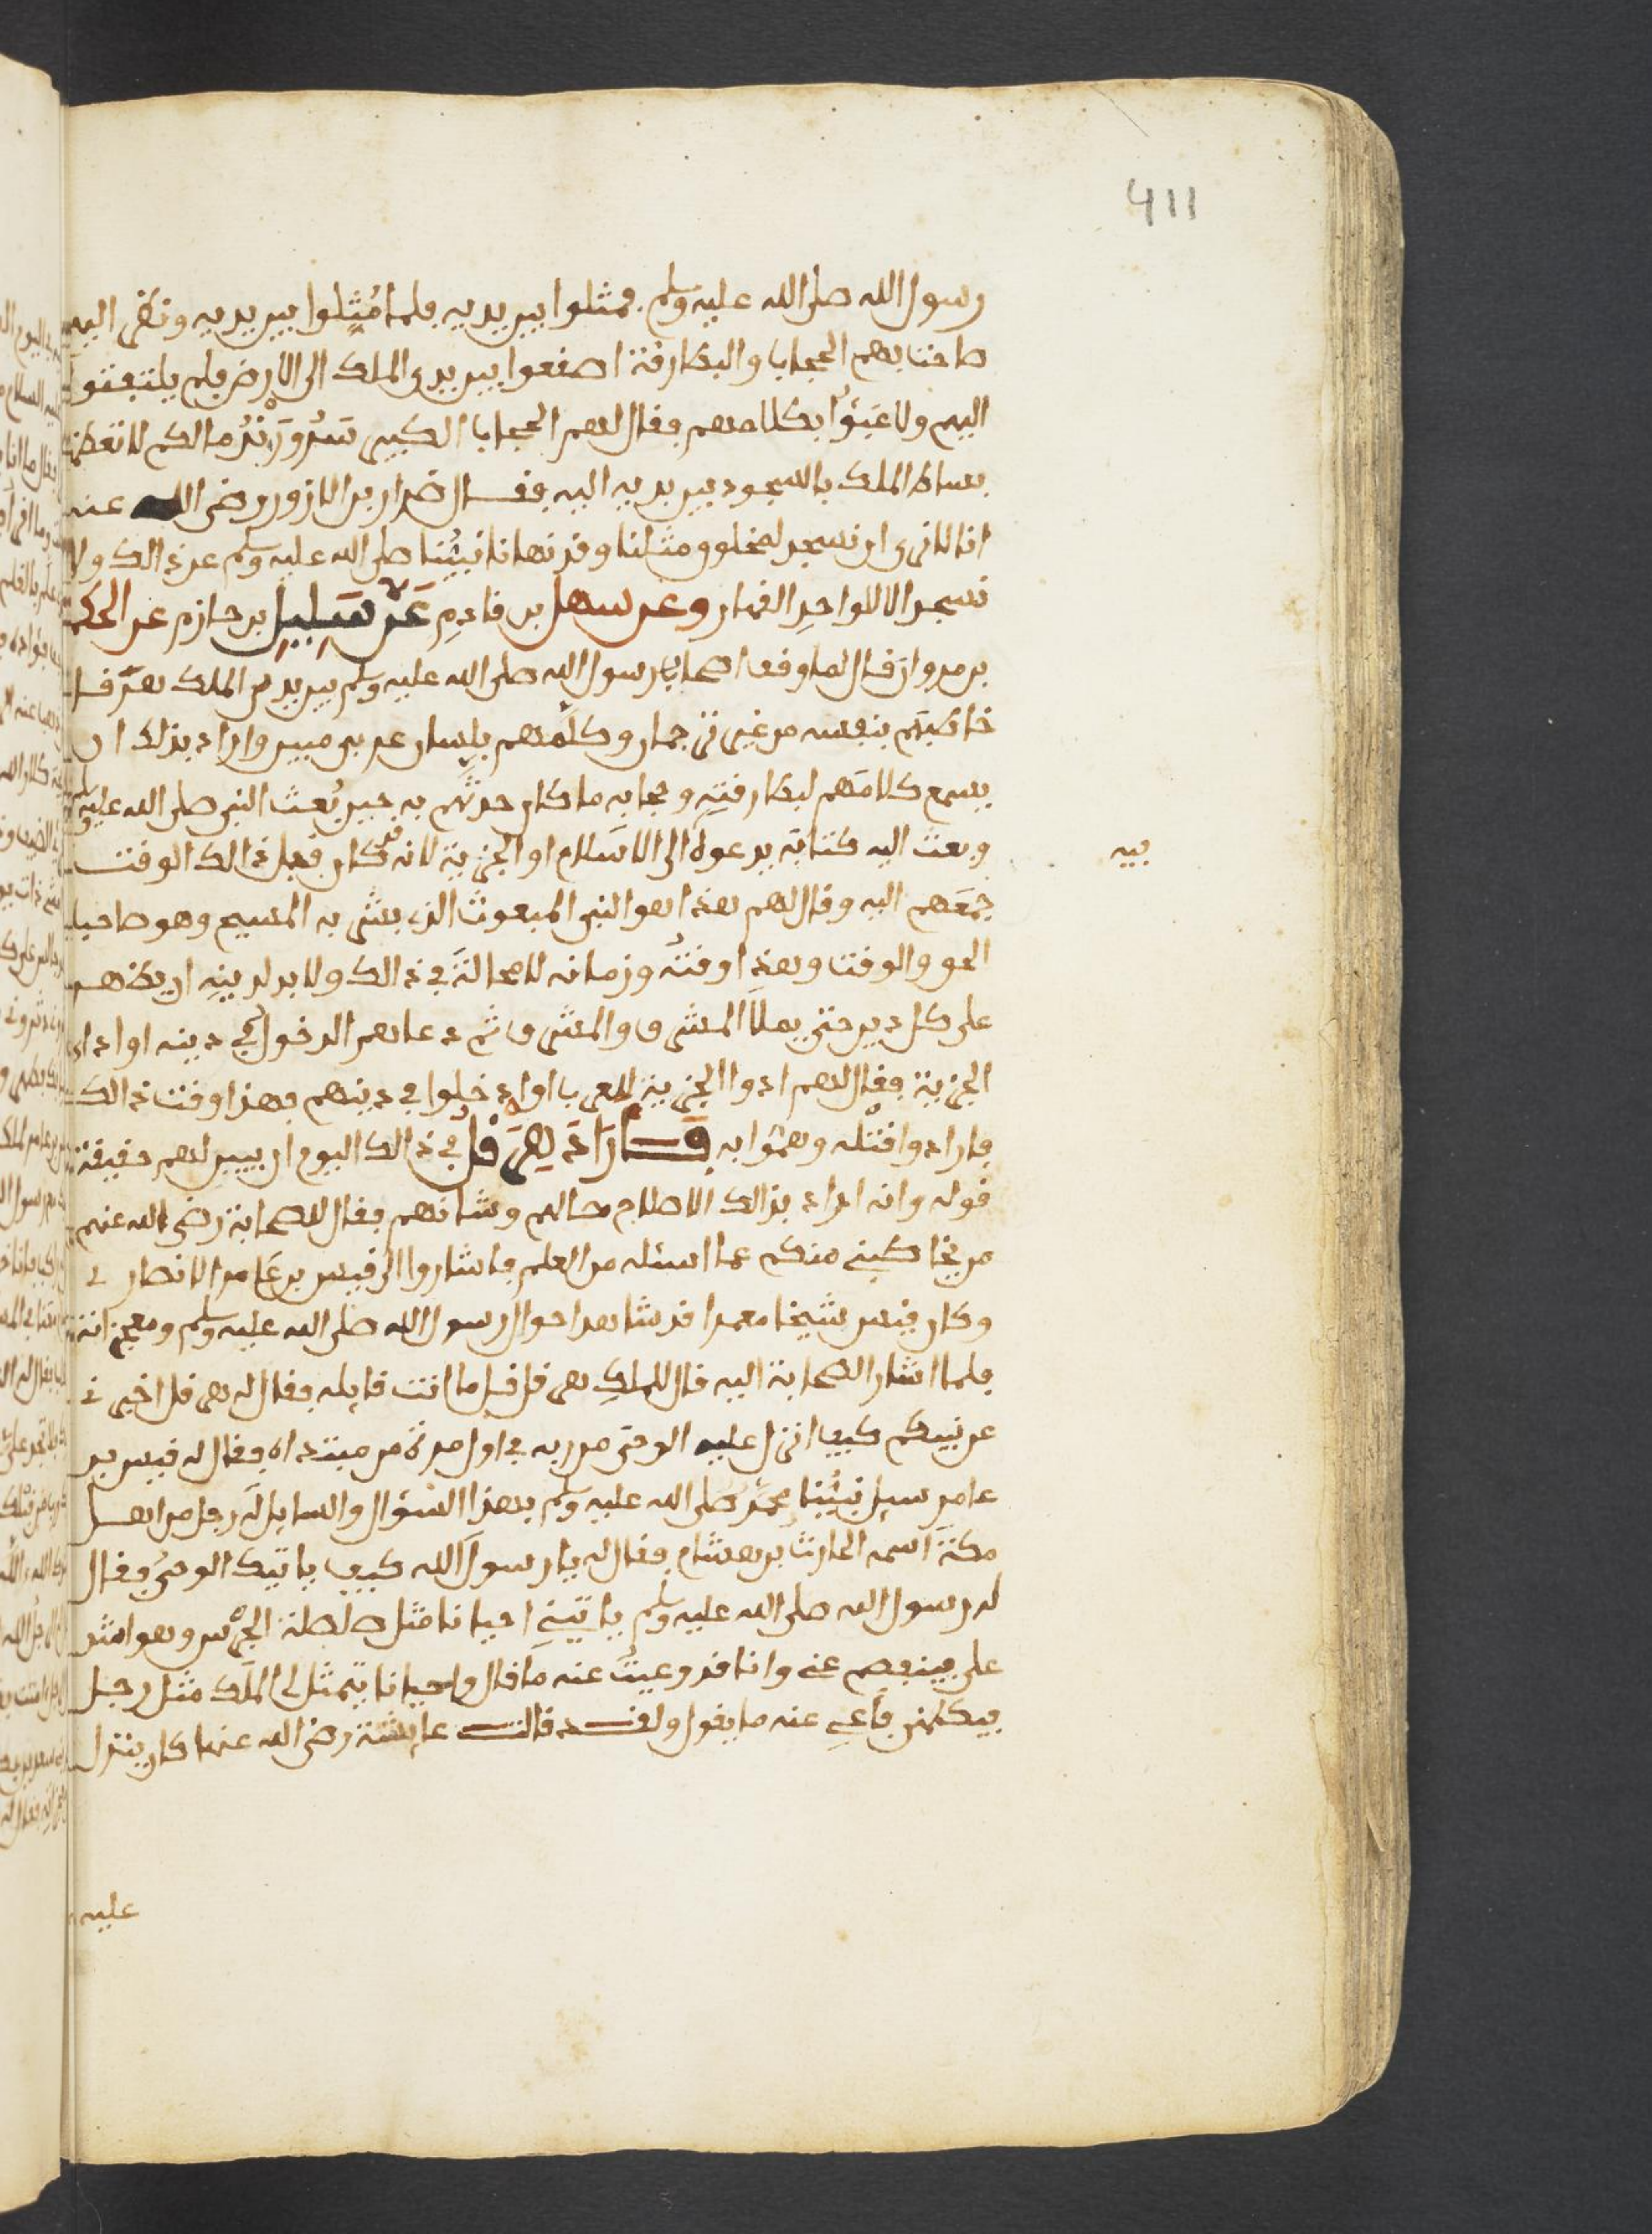 411
رسول الله صلى الله عليه وسلم فمثلوا بين يديه فلما مُثِلوا بين يديه ونظر اليهم
صاحت بهم الحجاب والبطارقة اصقعوا بين يدي الملك الى الارض فلم يلتفتوا
اليهم ولا عَبَؤُا بكلامهم فقال لهم الحجاب الكبير مالكم لا تعظموا
بساط الملك بالسجود بين يديه اليه فقال ضرار بن الازور رضي الله عنه
انا لا نرى ان نسجد لمخلوق مثلنا وقد نهانا نبيُّنا صلى الله عليه وسلم عن ذالك ولا
نسجد الا للواحد القهار وعن سهل بن قادِمٍ عَنْ بن حازم عن الحكم
بن مروان قال لما وقف اصحاب رسول الله صلى الله عليه وسلم بين يدي الملك هرقل
خاطبهم بنفسه من غير ترجمان وكلّمهم بلسان عربي مبين واراد بذلك ان
يسمع كلامَهم لبطارقتِهِ وحجابه ما كان حدثهم به حين بُعث النبي صلى الله عليه وسلم
وبعث اليه كتابَه يدعوهُ الى الاسلام او الجزية لانه قد كان قبل ذالك الوقت
بيه
جمَعَهم اليه وقال لهم هذا هو النبي المبعوث الذي بشر به المسيح وهو صاحب
الحق والوقت وهذا وقتُه وزمانه لا محالةَ في ذالك ولا بد لدينِهِ ان يظهر
على كل دين حتى يملا المشرق والمشرق ثم دعاهم الدخول في دينه او اداء
الجزية فقال لهم ادوا الجزية للعرب او ادخلوا في دينهم فهذا وقت ذالك
فارادوا قتْله وهمُّوا به فَارَادَ هِرَقْلُ في ذالك اليوم ان يبين لهم حقيقة
قوله وانه اراد بذالك الاصلاح حالهم وشانهم فقال للصحابة رضي الله عنهم
من يخاطبني منكم عما اسئله من العلم فاشاروا الى قيس بن عَامر الانصار ي
وكان قيس شيخا معمرا قد شاهد احوال رسول الله صلى الله عليه وسلم ومعجزاته
فلما اشار الصحابة اليه قال للملكِ هرقل قل ما انت قايله فقال له هرقل اخبر ني
عن نبيكم كيف انزل عليه الوحي من ربه في اول مرة من مبتداه فقال له قيس بن
عامر سيل نبيُّنا محمّد صلى الله عليه وسلم بهذا السؤال والسايل لَه رجل من اهل
مكةَ اسمه الحارث بن هشام فقال له يا رسولَ الله كيف ياتيك الوحيُ فقال
له رسول الله صلى الله عليه وسلم ياتينِي احيانا مثل صلصلة الجرْس وهو اشد
علي فينفصم عني وانا قد وعيتُ عنه ما قال واحيانا يتمثل لي الملَك مثل رجل
فيكلمني فأعي عنه ما يقول ولقد قالت عايشة رضي الله عنها كان ينزل
عليه